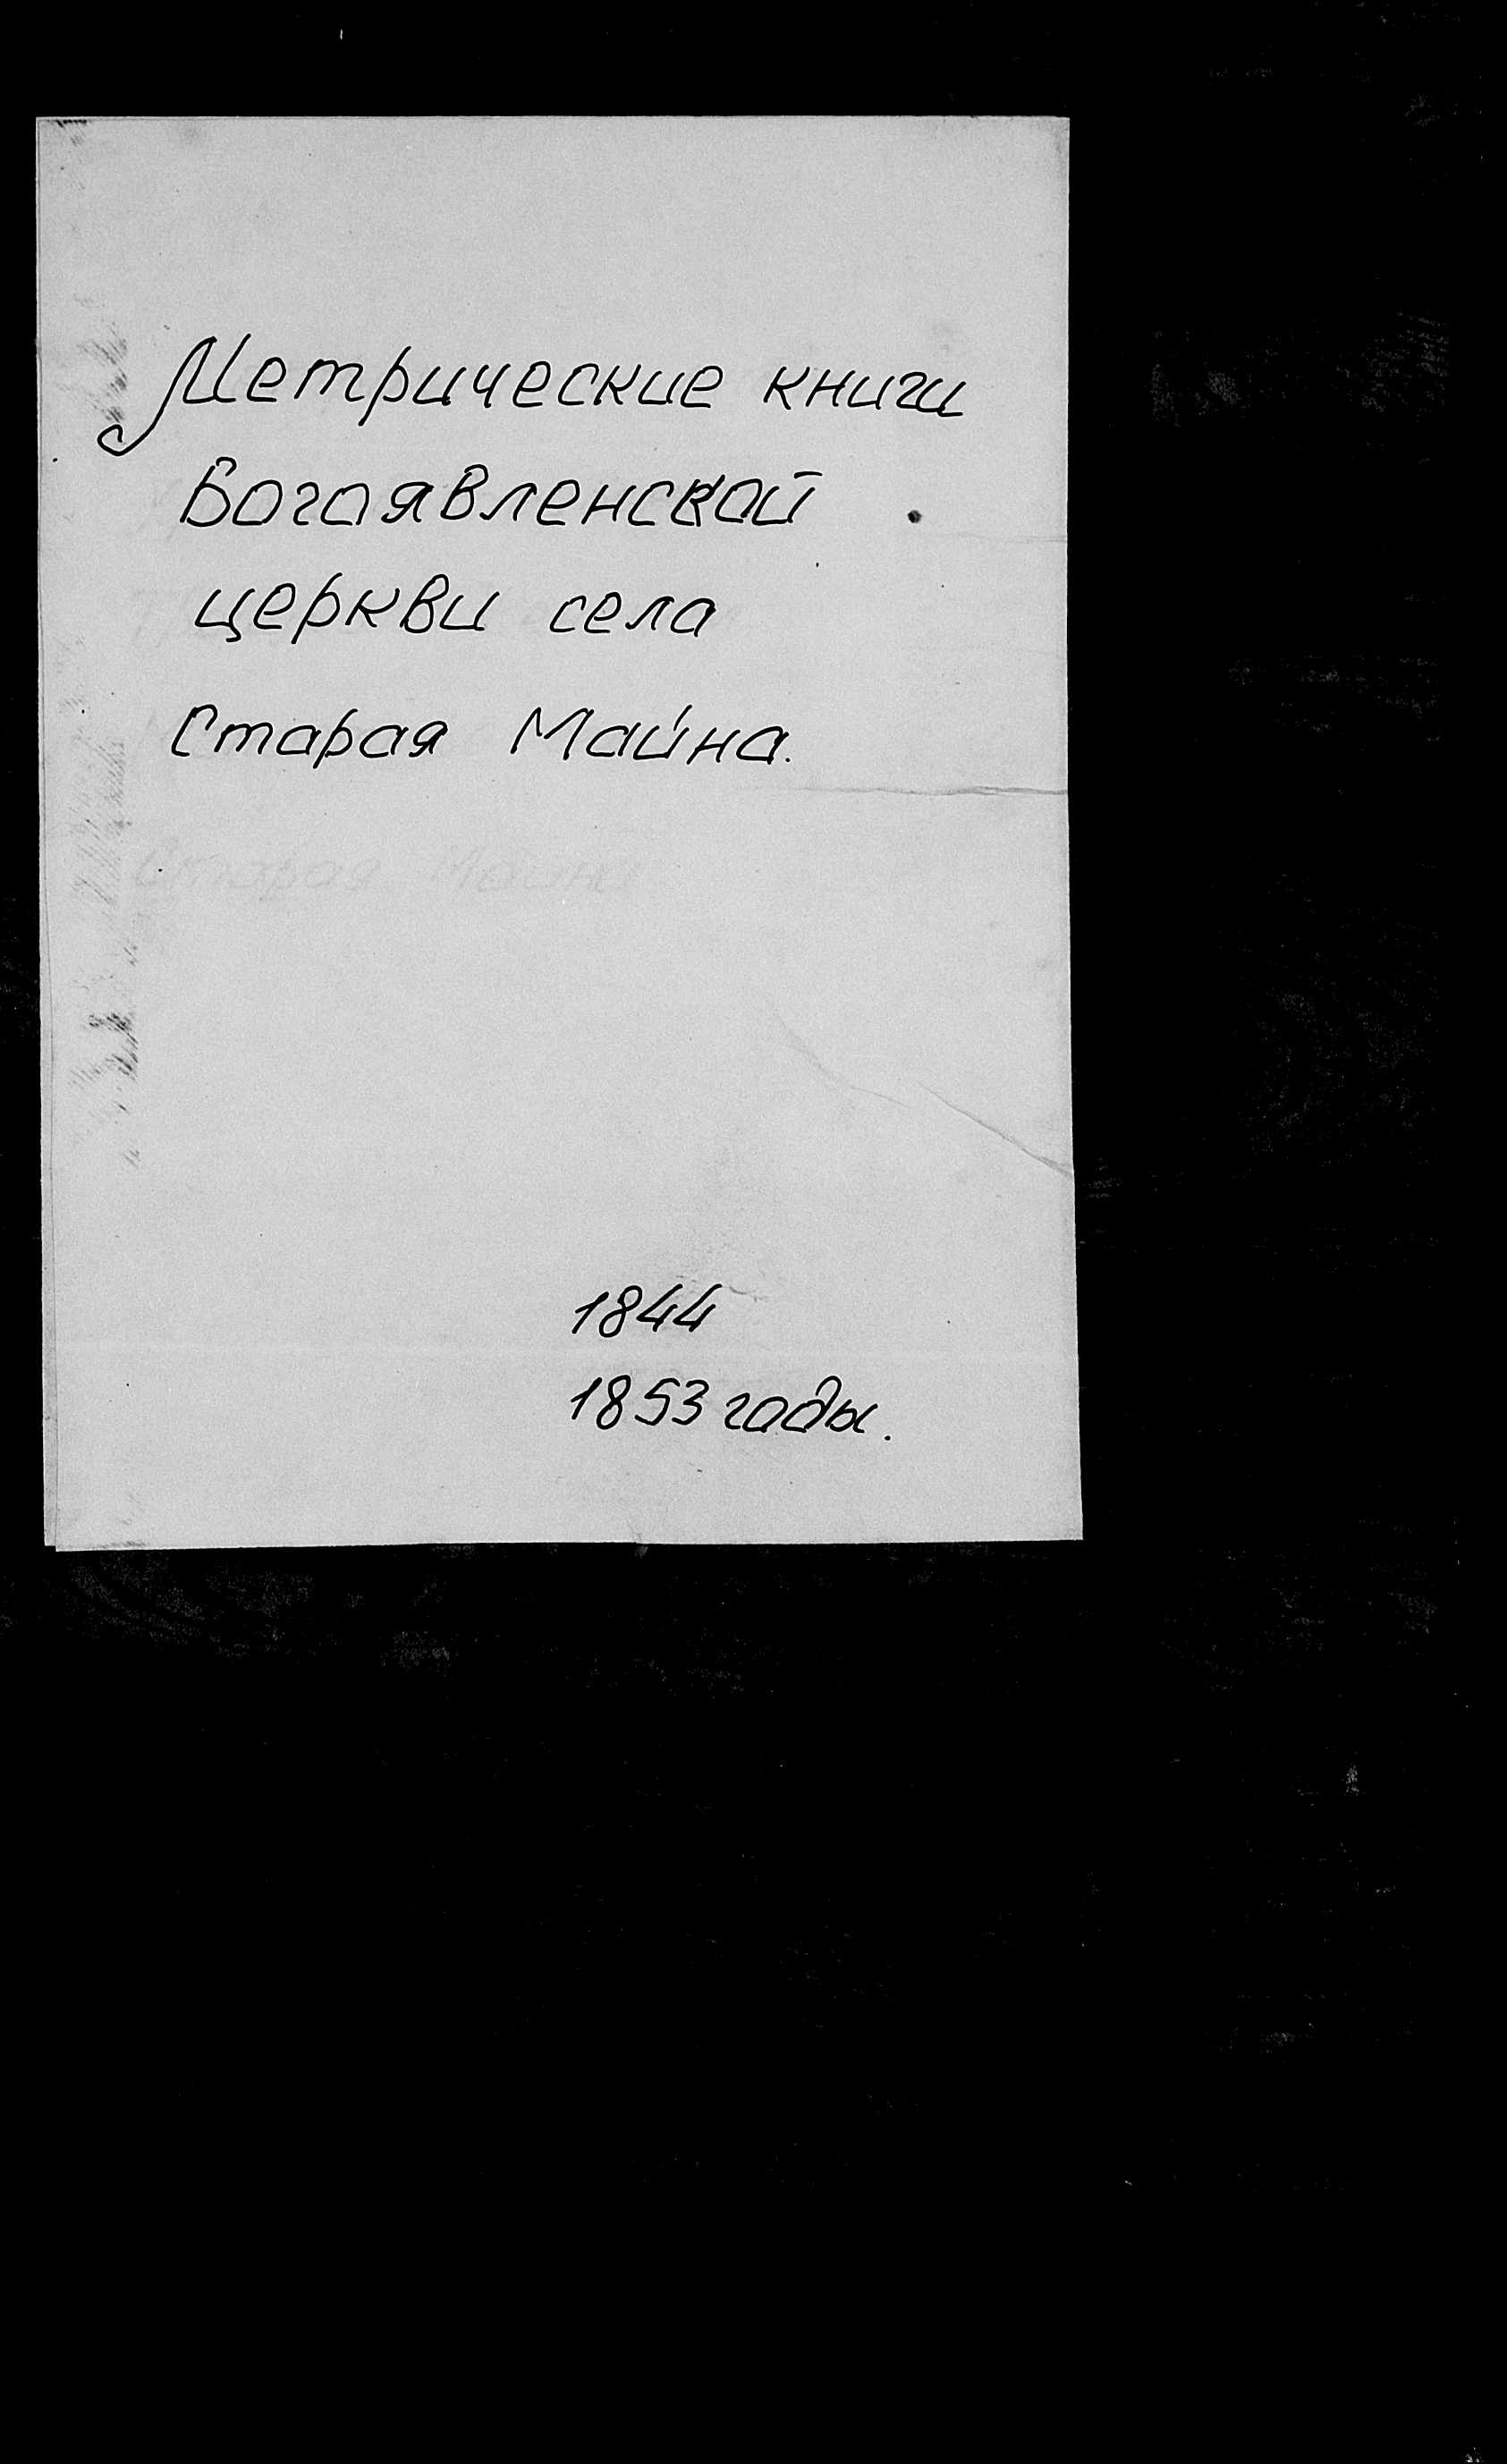 Метрические книги
Богоявленской
церкви села
Старая Майна.
Старая Майна
1844
1853 годы.